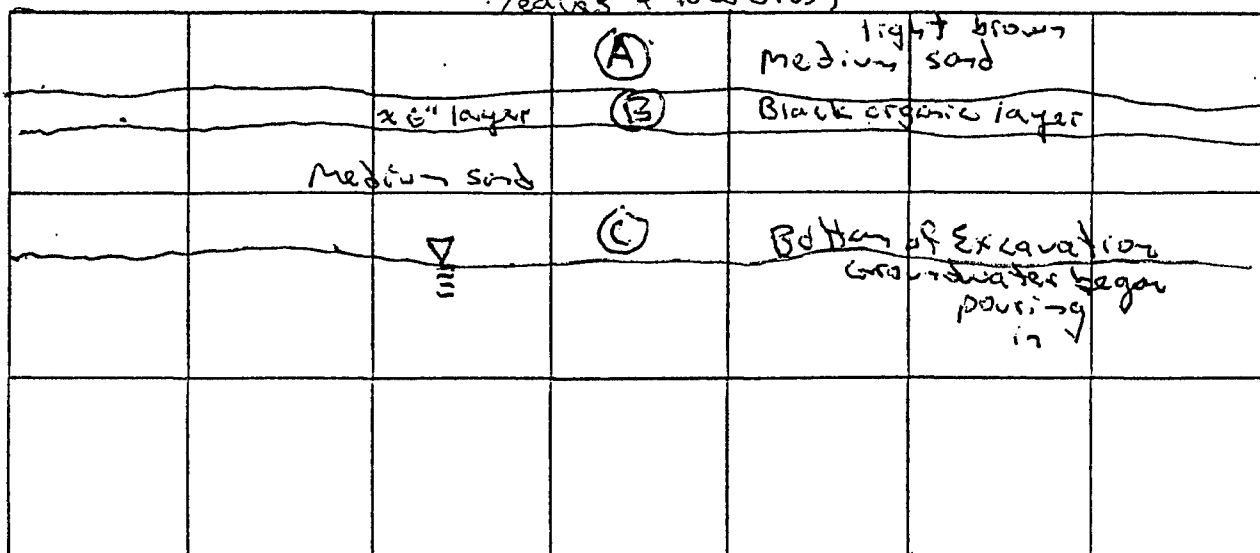 light brown
(A) Medium sand
layer (B) Black organic layer
Medium sand
(C) Bottom of Excavation
Groundwater began
pouring
in